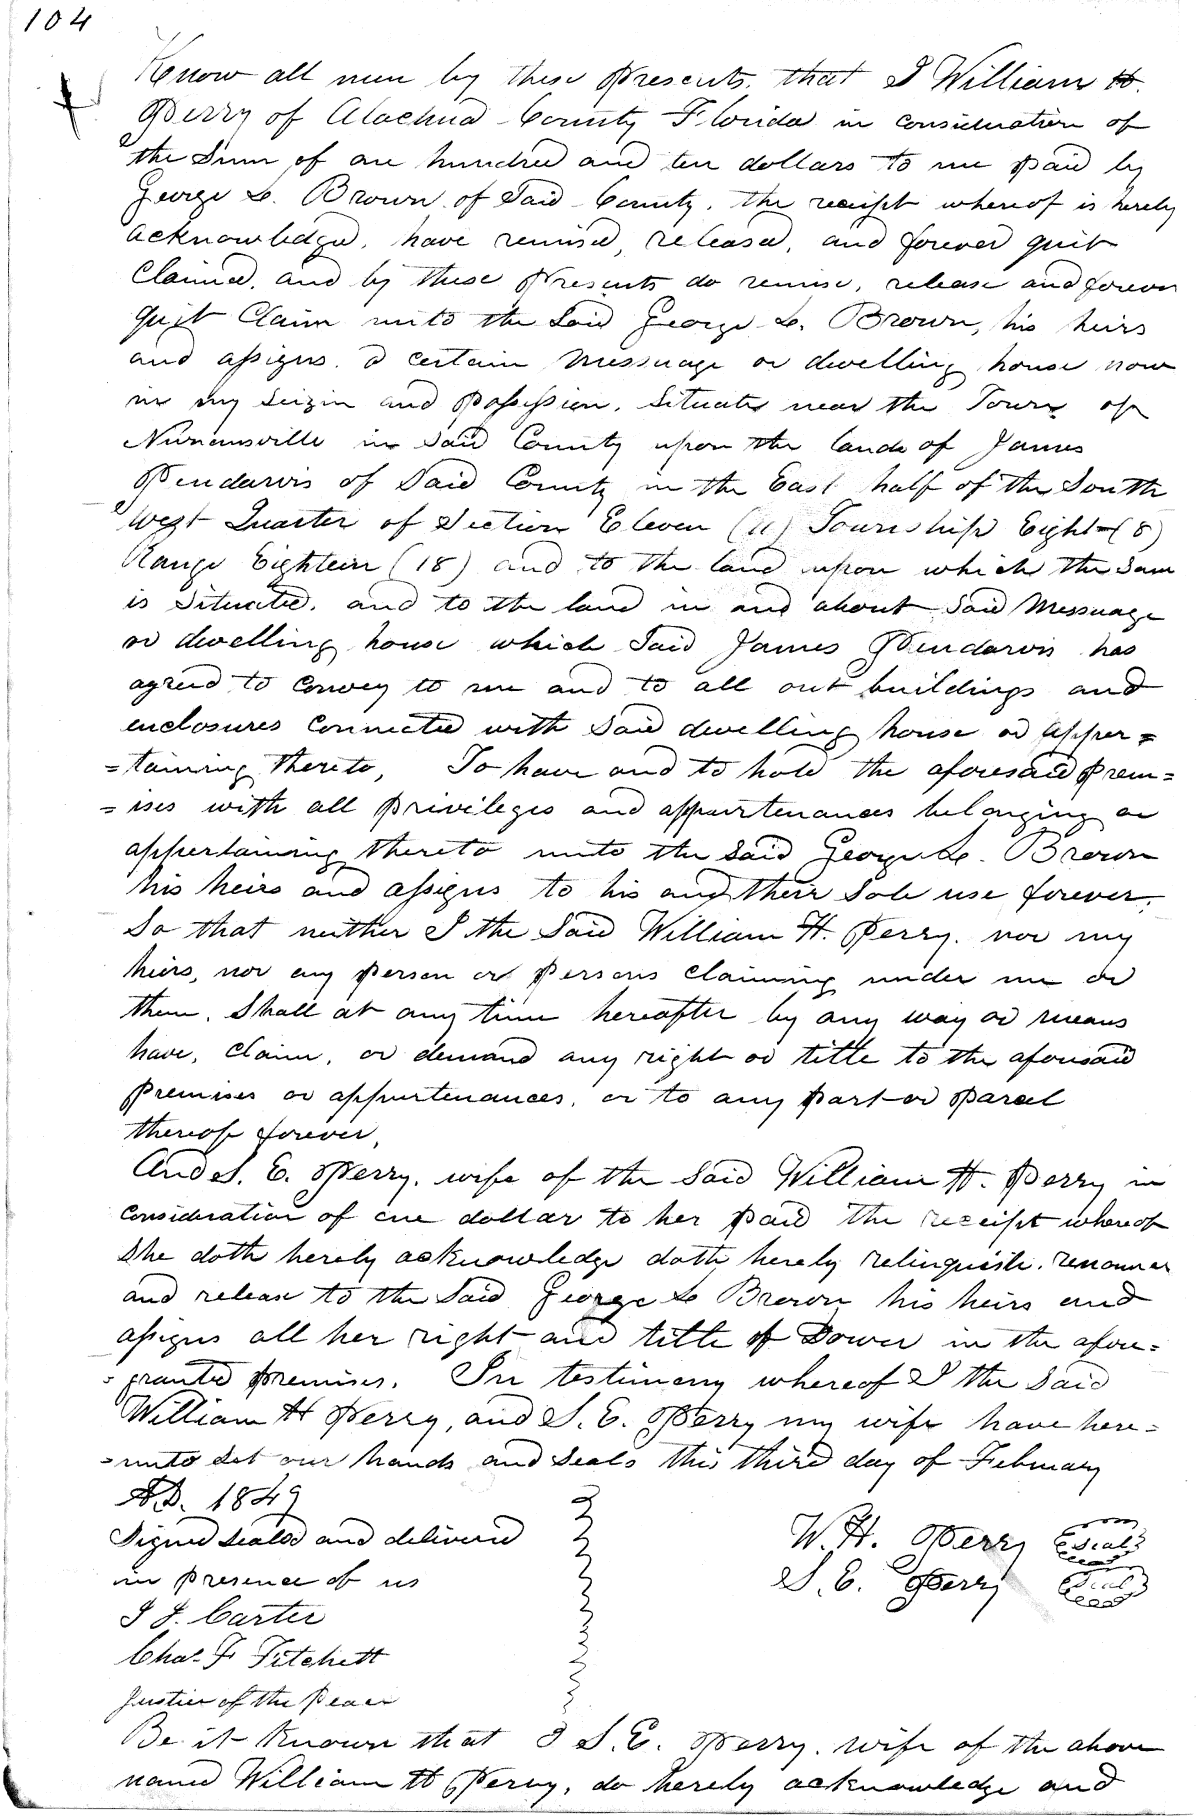 104
Know all men by these Presents, that I William H.
Perry of Alachua County Florida in consideration of
the Sum of one hundred and ten dollars to me paid by
George L. Brown of Said County, the receipt whereof is hereby
acknowledged, have remised, released, and forever quit
Claimed, and by these Presents do remise, release and forever
quit Claim unto the Said George L. Brown, his heirs
and assigns, a certain Messuage or dwelling house now
in my seizin and possession, situate near the Town of
Newnansville in said County upon the lands of James
Pendarvis of Said County in the East half of the South
West Quarter of Section Eleven (11) Township Eight (8)
Range Eighteen (18) and to the land upon which the Same
is situated, and to the land in and about said Messuage
or dwelling house which Said James Pendarvis has
agreed to convey to me and to all out buildings and
enclosures connected with said dwelling house or apper=
=taining thereto, To have and to hold the aforesaid Prem=
=ises with all privileges and appurtenances belonging or
appertaining thereto unto the said George L. Brown
his heirs and assigns to his and their sole use forever,
So that neither I the Said William H. Perry, nor my
heirs, nor any Person or Persons claiming under me or
them, Shall at any time hereafter by any way or means
have, claim, or demand any right or title to the aforesaid
Premises or appurtenances, or to any part or parcel
thereof forever,
And S. E. Perry, wife of the said William H. Perry in
consideration of one dollar to her paid the receipt whereof
She doth hereby acknowledge doth hereby relinquish, renounce
and release to the Said George L Brown his heirs and
assigns all her right and title of Dower in the afore=
=granted premises. In testimony whereof I the Said
William H Perry, and S. E. Perry my wife have here=
=unto set our hands and seals this third day of February
A.D. 1849
Signed sealed and delivered
in presence of us
J J. Carter
Chas. F Fitchett
Justice of the Peace
W. H. Perry Seal
S. E. Perry Seal
Be it known that I S. E. Perry, wife of the above
named William H Perry, do hereby acknowledge and